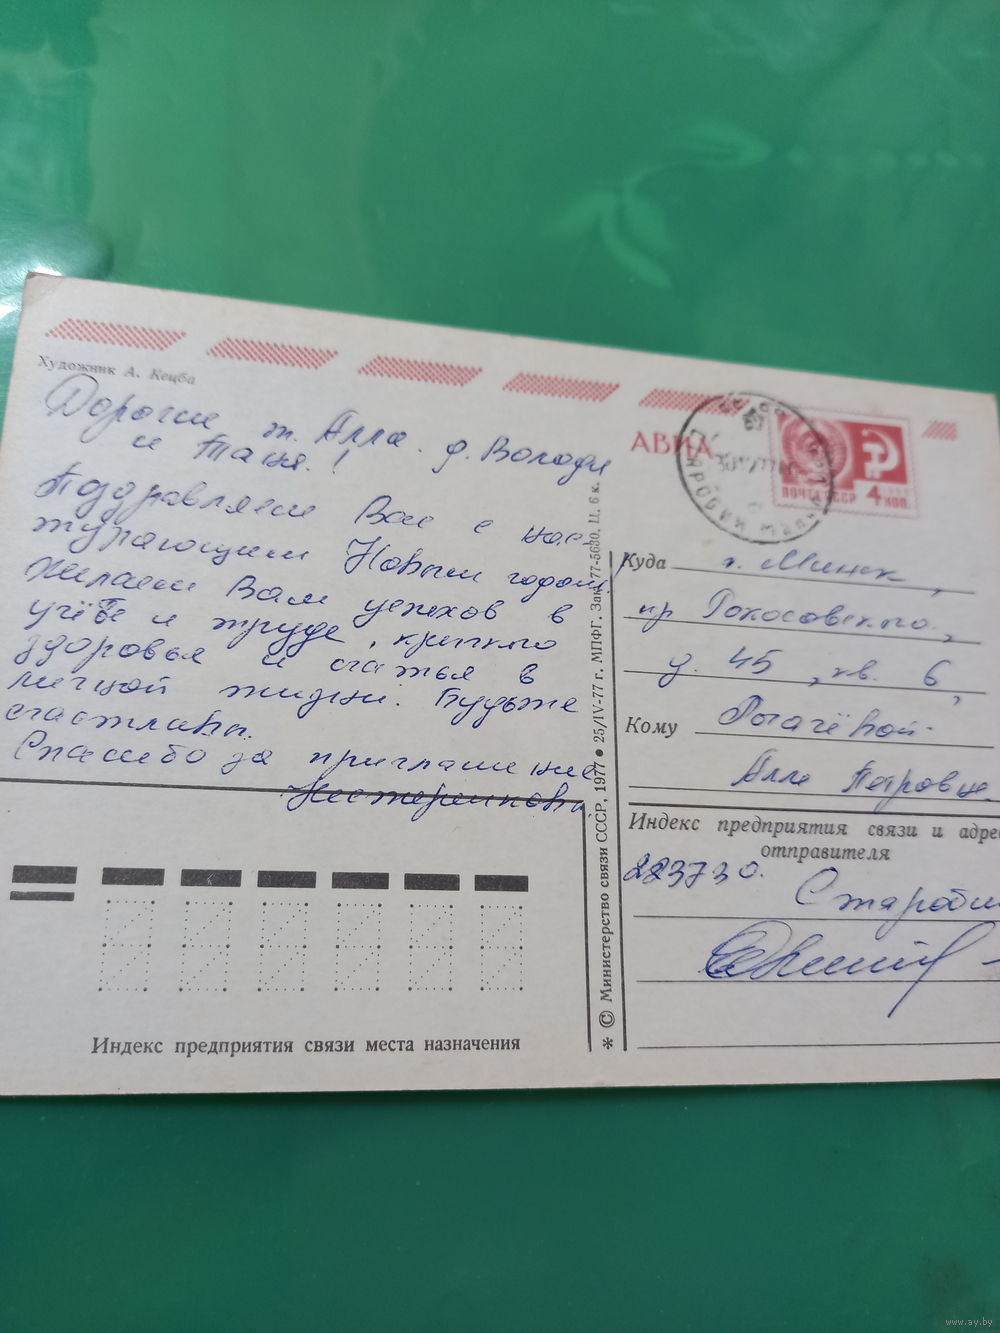 Художник А. Кецба
Дорогие т. Алла. д. Володя
и Таня!
Поздравляем Вас с нас-
тупающим Новым годом!
Желаем Вам успехов в
учёбе и труде, крепкого
здоровья и счастья в
личной жизни. Будьте
счастливы.
Спасибо за приглашение
Индекс предприятия связи места назначения
* © Министерство связи СССР, 1977 • 25/IV-77 г. МПФГ. Зак. 77-5680. Ц. 6 к.
АВИА
ПОЧТА СССР 4 КОП.
Куда г. Минск,
пр Рокосовского,
д. 45, кв. 6,
Кому Рогачёвой
Алле Петровне
Индекс предприятия связи и адрес
отправителя
283730.
www.ay.by